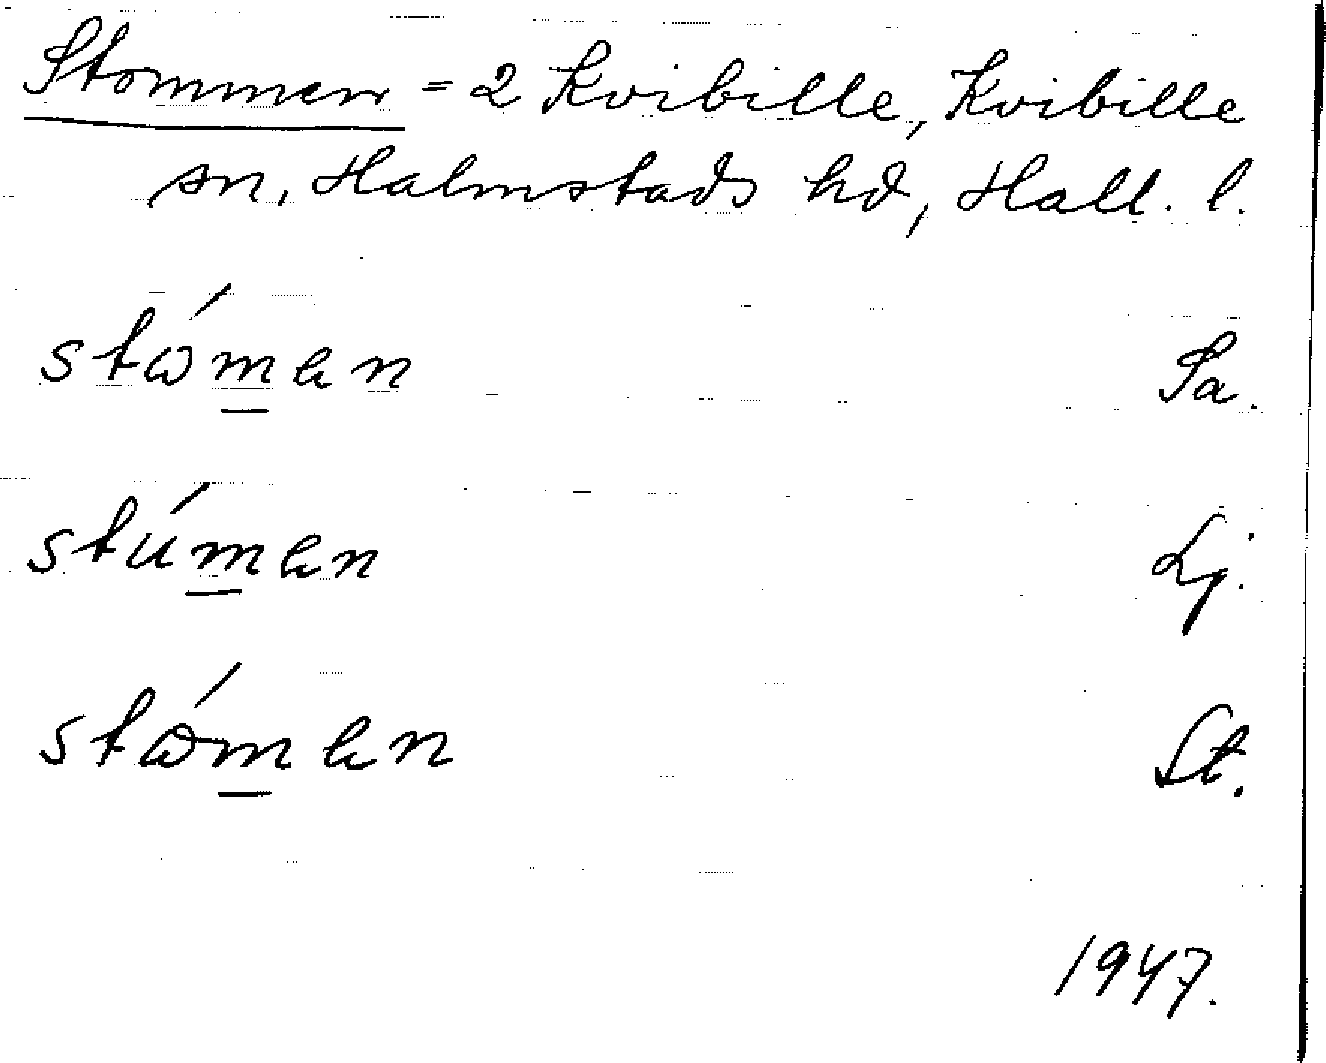 Stommen = 2 Kvibille, Kvibille
sn, Halmstads hd, Hall. l.
stώm̲en Sa.
stúm̲en Lj.
stώm̲en St.
1947.